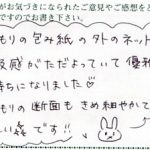 が気づきになられたご意見やご感想をと
ですのでお書き下さい。
もりの包み紙の外のネット
級感がただよっていて優雅
持ちになりました♡
もりの断面もきめ細やかで
い🐛です!!